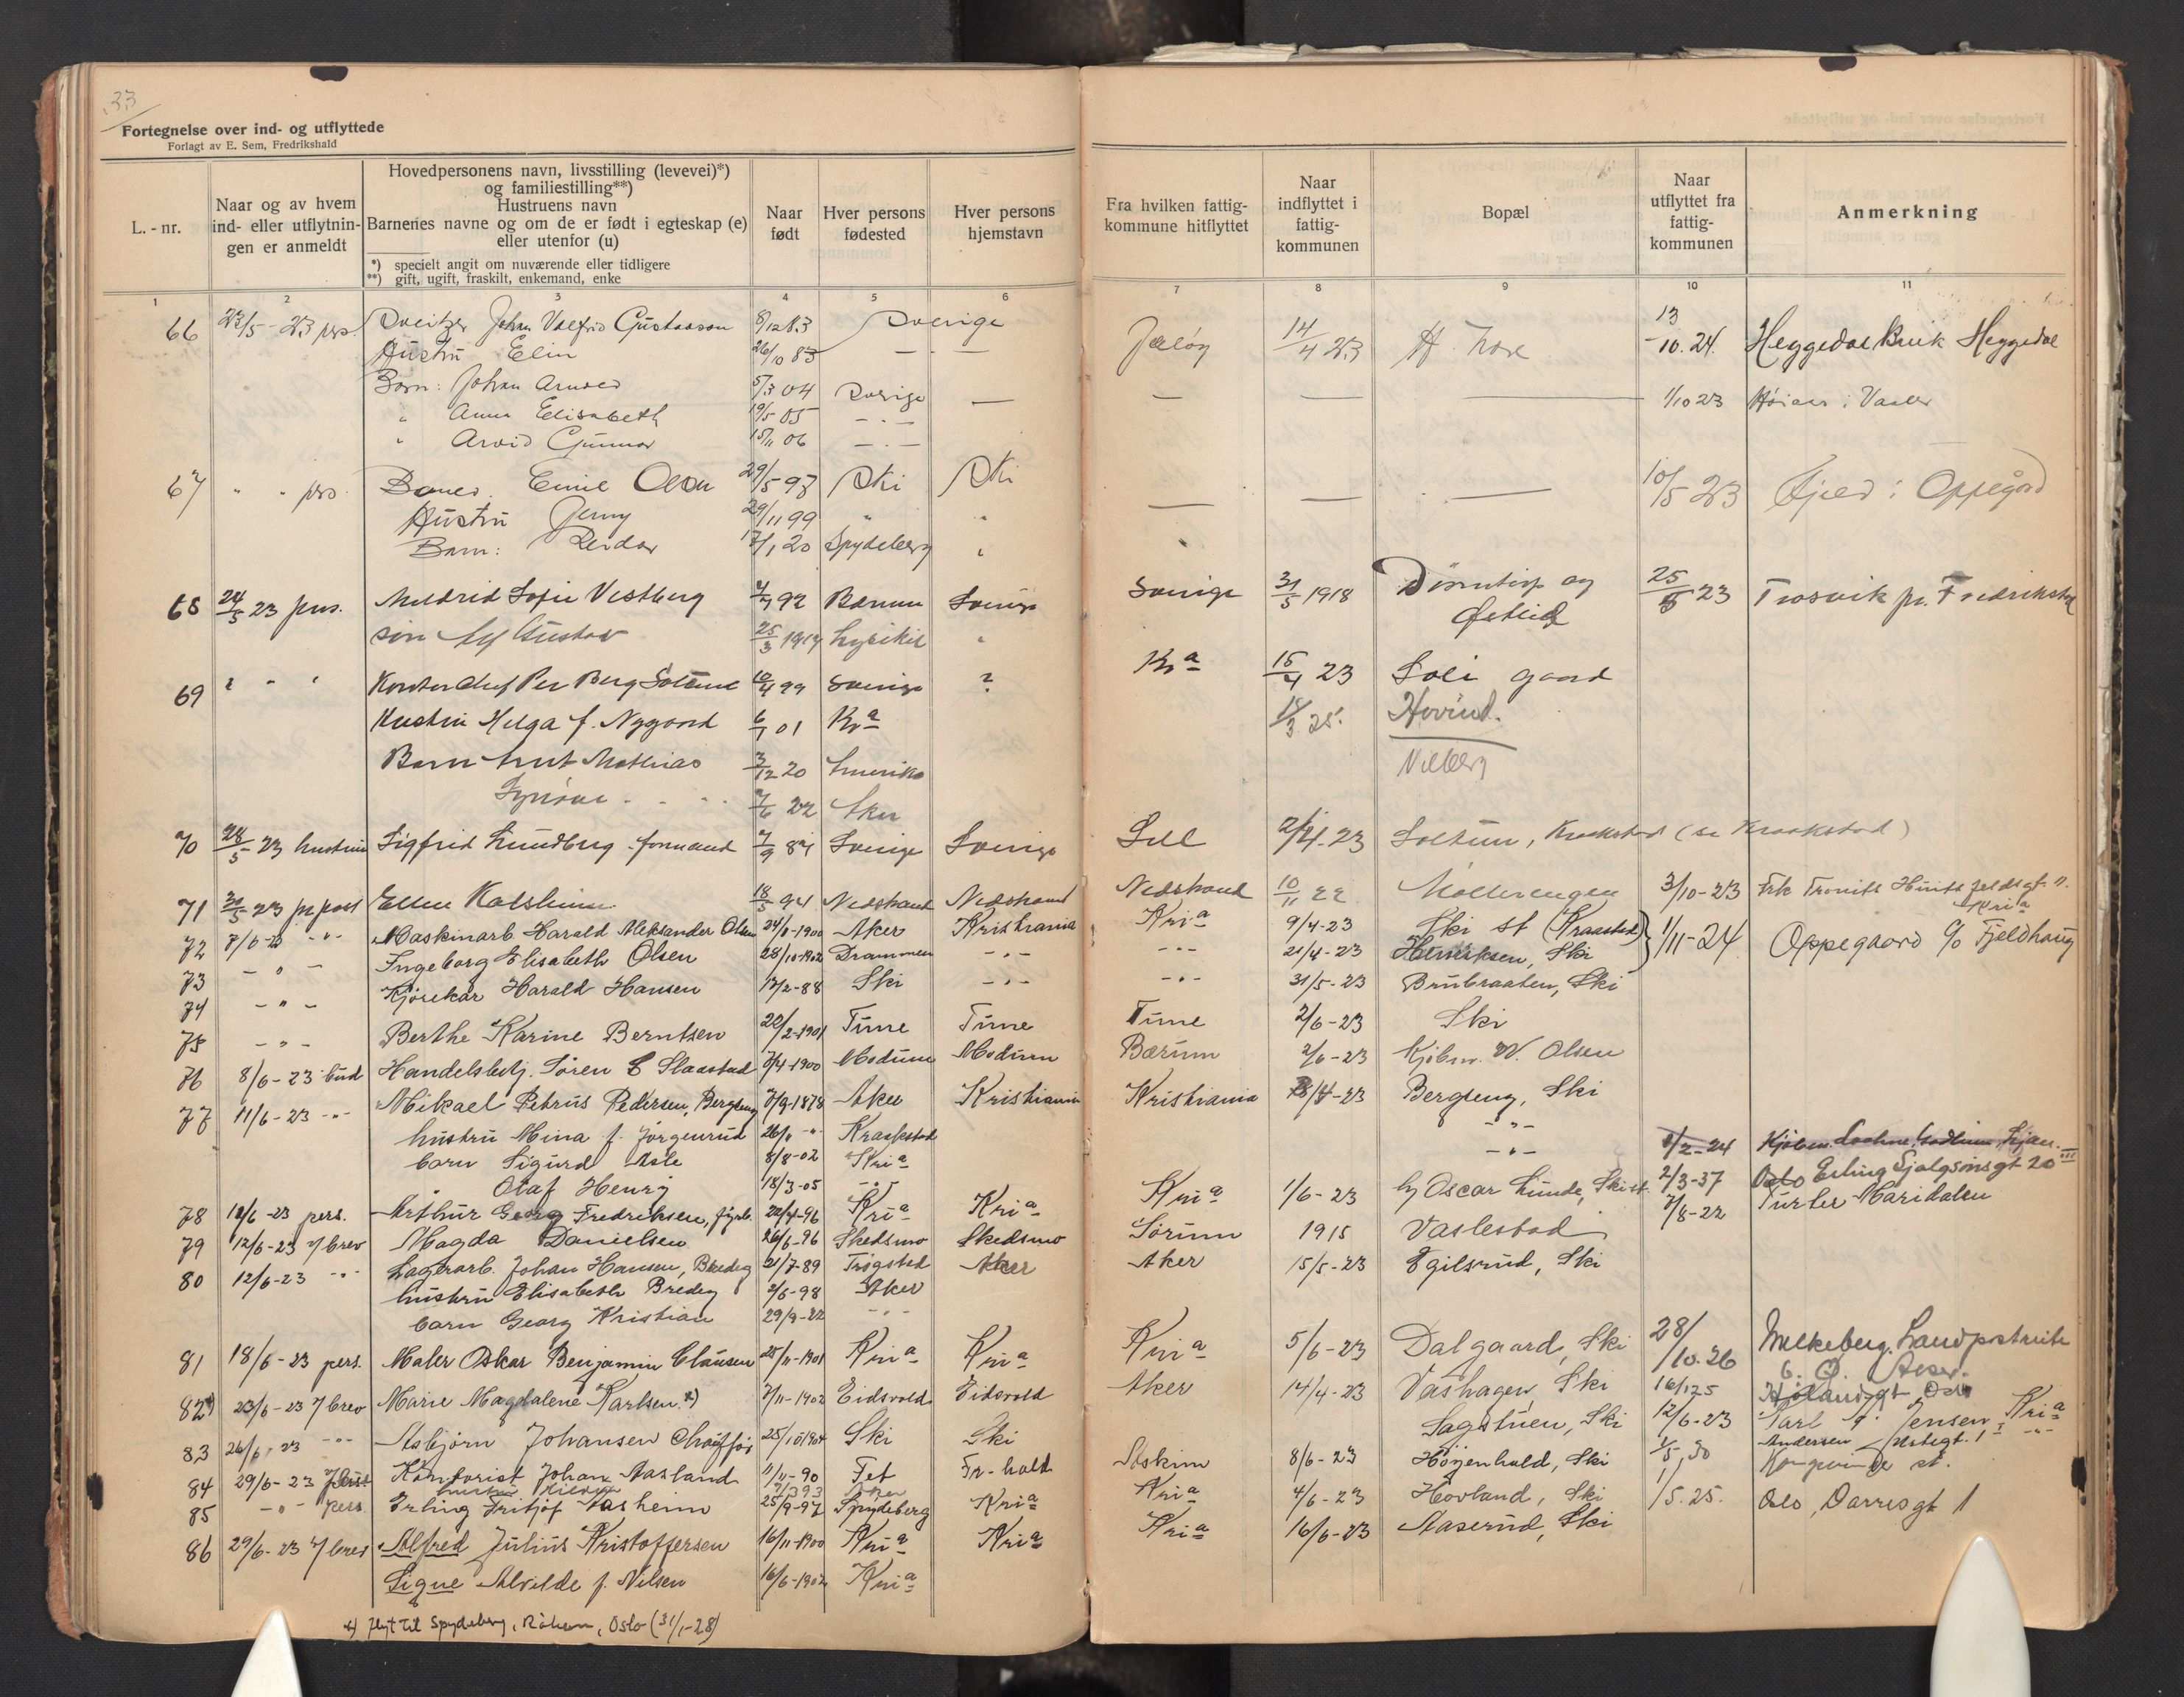 33
Fortegnelse over ind- og utflyttede
Forlagt av E. Sem, Fredrikshald
L.-nr.
Naar og av hvem ind- eller utflytningen er anmeldt
Hovedpersonens navn, livsstilling (levevei)*)
og familiestilling**)
Hustruens navn
Barnenes navne og om de er født i egteskap (e)
eller utenfor (u)
*) specielt angit om nuværende eller tidligere
**) gift, ugift, fraskilt, enkemand, enke
Naar født
Hver persons fødested
Hver persons hjemstavn
Fra hvilken fattigkommune hitflyttet
Naar indflyttet i fattigkommunen
Bopæl
Naar utflyttet fra fattigkommunen
Anmerkning
1 2 3 4 5 6 7 8 9 10 11
66 23/5-23 pers. Johan Valfrid Gustavson 8/12 83 Sverige Jeløy 14/4 23 13/10.24. Heggedal Bruk Heggedal
Hustru Elin 26/10 83 — —
Barn: Johan Arnold 5/3 04 Sverige — — — — 1/10 23 i Vaaler
" Anna Elisabeth 19/5 05 — . —
" Arvid Gunnar 15/11 06 — . —
67 " " pers. Emil Olsen 29/5 97 Ski Ski — — — 10/5 23 i Oppegård
Hustru Jenny 29/11 99 " "
Barn: Reidar 17/1 20 Spydeberg "
68 24/5 23 pers. Mildrid Sofie Vestberg 4/7 92 Bærum Sverige Sverige 31/5 1918 og 25/5 23 Trosvik pr. Fredrikstad
søn Alf Gustav 25/3 1917 "
69 " " " Kontorchef Per Berg 10/4 99 Sverige ? Kr a 15/4 23 Soli gaard
Hustru Helga f. Nygaard 6/1 01 Kr a 15/3 25. Hovind.
Barn Knut Mathias 3/12 20 Amerika
7/6 22 Aker
70 28/5 23 hustru Sigfrid Lundberg formand 7/9 87 Sverige Sverige 2/4-23 Soltun, Kraakstad (se Kraakstad)
71 30/5 23 pr post Ellen 18/5 94 Nedstrand Nedstrand Nedstrand 10/11 22 Møllerengen 3/10-23 Kria
72 7/6-23 -"- Maskinarb. Harald Aleksander Olsen 24/8-1900 Aker Kristiania Kria 9/4-23 Ski st (Kraastad) } 1/11-24 Oppegaard c/o Fjeldhaug
73 - " - Ingeborg Elisabeth Olsen 28/10-1902 Drammen -"- -"- 21/4-23 Henriksen, Ski
74 - " - Kjørekar Harald Hansen 17/2-88 Ski -"- -"- 31/5-23 Brubraaten, Ski
75 - " - Berthe Karine Berntsen 22/2-1901 Time Time Time 2/6-23 Ski
76 8/6-23 bud Handelsbetj. Søren E Slaastad 7/4-1900 Modum Modum Bærum 2/6-23 Kjøbm. W. Olsen
77 11/6-23 -"- Mikael Petrus Pedersen, Bergseng 7/9-1878 Aker Kristiania Kristiania 28/4-23 Bergseng, Ski
hustru Mina f. Jørgenrud 26/1 -"- Kraakstad -"-
barn Sigurd Asle 8/8-02 Kria -"- 1/2-24 Kjøbm.
" Olaf Henry 18/3-05 -"- 2/3-37 Oslo Erling Sjalgsønsgt 20 III
78 12/6-23 pers. Arthur Georg Fredriksen, fyrb. 22/4-96 Kria Kria Kria 1/6-23 hj Oscar Lunde, Ski st. 7/8-22 Turter Maridalen
79 12/6-23 /brev Magda Danielsen 26/6-96 Skedsmo Skedsmo Sørum 1915 Vaslestad
80 12/6-23 -"- Lagerarb. Johan Hansen, Bredeg 21/7-89 Trøgstad Aker Aker 15/5-23 Egilsrud, Ski
hustru Elisabeth Bredeg 2/6-98 Aker
barn Georg Kristian 29/9-22 -"-
81 18/6-23 pers. Maler Oskar Benjamin Clausen 25/11-1901 Kria Kria Kria 5/6-23 Dalgaard, Ski 28/10.26 Landpostrute 6. Ø. Aker.
82 *) 23/6-23 /brev Marie Magdalene Karlsen *) 7/11-1902 Eidsvold Eidsvold Aker 14/4-23 Vashagen, Ski 16/1 25 Oslo
83 26/6,23 -"- Asbjørn Johansen Chauffør 25/10 1904 Ski Ski Sagstuen, Ski 12/6-23 Jensen Kria
84 29/6-23 Kontorist Johan Aasland 11/11-90 Fet Fr-hald Askim 8/6-23 Høyenhald, Ski 30 Kongsvinge st.
85 -"- pers. Erling Fritjof Aasheim 25/9-97 Spydeberg Kria Kria 4/6-23 Hovland, Ski 1/5.25. Oslo, Darresgt 1
86 29/6-23 /brev Alfred Julius Kristoffersen 16/11-1900 Kria Kria Kria 16/6-23 Aaserud, Ski
Signe Alvilde f. Nilsen 16/6-1902 Kria
*) flyt til Spydeberg, Oslo (31/1-28)